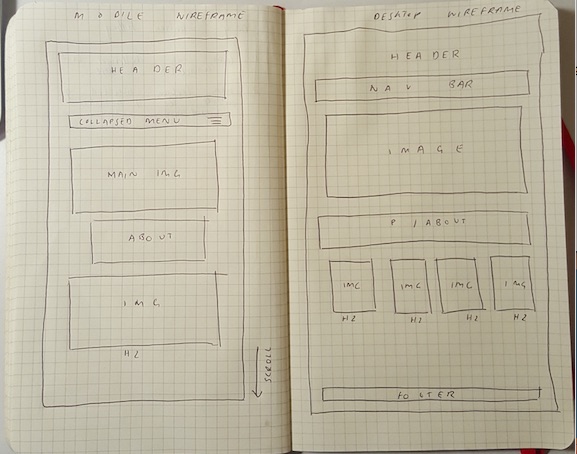 MOBILE WIREFRAME
HEADER
COLLAPSED MENU
MAIN IMG
ABOUT
IMG
H2
SCROLL
DESKTOP WIREFRAME
HEADER
NAV BAR
IMAGE
P / ABOUT
IMG IMG IMG IMG
H2 H2 H2 H2
FOOTER